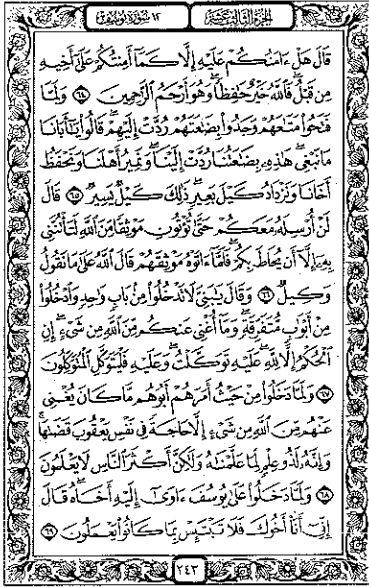 الجزء الثالث عشر
١٢ سورة يوسف
قَالَ هَلْ ءَامَنُكُمْ عَلَيْهِ إِلَّا كَمَآ أَمِنتُكُمْ عَلَىٰٓ أَخِيهِ
مِن قَبْلُ فَٱللَّهُ خَيْرٌ حَٰفِظًا وَهُوَ أَرْحَمُ ٱلرَّٰحِمِينَ ۝٦٤ وَلَمَّا
فَتَحُوا۟ مَتَٰعَهُمْ وَجَدُوا۟ بِضَٰعَتَهُمْ رُدَّتْ إِلَيْهِمْ قَالُوا۟ يَٰٓأَبَانَا
مَا نَبْغِى هَٰذِهِۦ بِضَٰعَتُنَا رُدَّتْ إِلَيْنَا وَنَمِيرُ أَهْلَنَا وَنَحْفَظُ
أَخَانَا وَنَزْدَادُ كَيْلَ بَعِيرٍ ذَٰلِكَ كَيْلٌ يَسِيرٌ ۝٦٥ قَالَ
لَنْ أُرْسِلَهُۥ مَعَكُمْ حَتَّىٰ تُؤْتُونِ مَوْثِقًا مِّنَ ٱللَّهِ لَتَأْتُنَّنِى
بِهِۦٓ إِلَّآ أَن يُحَاطَ بِكُمْ فَلَمَّآ ءَاتَوْهُ مَوْثِقَهُمْ قَالَ ٱللَّهُ عَلَىٰ مَا نَقُولُ
وَكِيلٌ ۝٦٦ وَقَالَ يَٰبَنِىَّ لَا تَدْخُلُوا۟ مِنۢ بَابٍ وَٰحِدٍ وَٱدْخُلُوا۟
مِنْ أَبْوَٰبٍ مُّتَفَرِّقَةٍ وَمَآ أُغْنِى عَنكُم مِّنَ ٱللَّهِ مِن شَىْءٍ إِنِ
ٱلْحُكْمُ إِلَّا لِلَّهِ عَلَيْهِ تَوَكَّلْتُ وَعَلَيْهِ فَلْيَتَوَكَّلِ ٱلْمُتَوَكِّلُونَ
۝٦٧ وَلَمَّا دَخَلُوا۟ مِنْ حَيْثُ أَمَرَهُمْ أَبُوهُم مَّا كَانَ يُغْنِى
عَنْهُم مِّنَ ٱللَّهِ مِن شَىْءٍ إِلَّا حَاجَةً فِى نَفْسِ يَعْقُوبَ قَضَىٰهَا
وَإِنَّهُۥ لَذُو عِلْمٍ لِّمَا عَلَّمْنَٰهُ وَلَٰكِنَّ أَكْثَرَ ٱلنَّاسِ لَا يَعْلَمُونَ
۝٦٨ وَلَمَّا دَخَلُوا۟ عَلَىٰ يُوسُفَ ءَاوَىٰٓ إِلَيْهِ أَخَاهُ قَالَ
إِنِّىٓ أَنَا۠ أَخُوكَ فَلَا تَبْتَئِسْ بِمَا كَانُوا۟ يَعْمَلُونَ ۝٦٩
٢٤٣